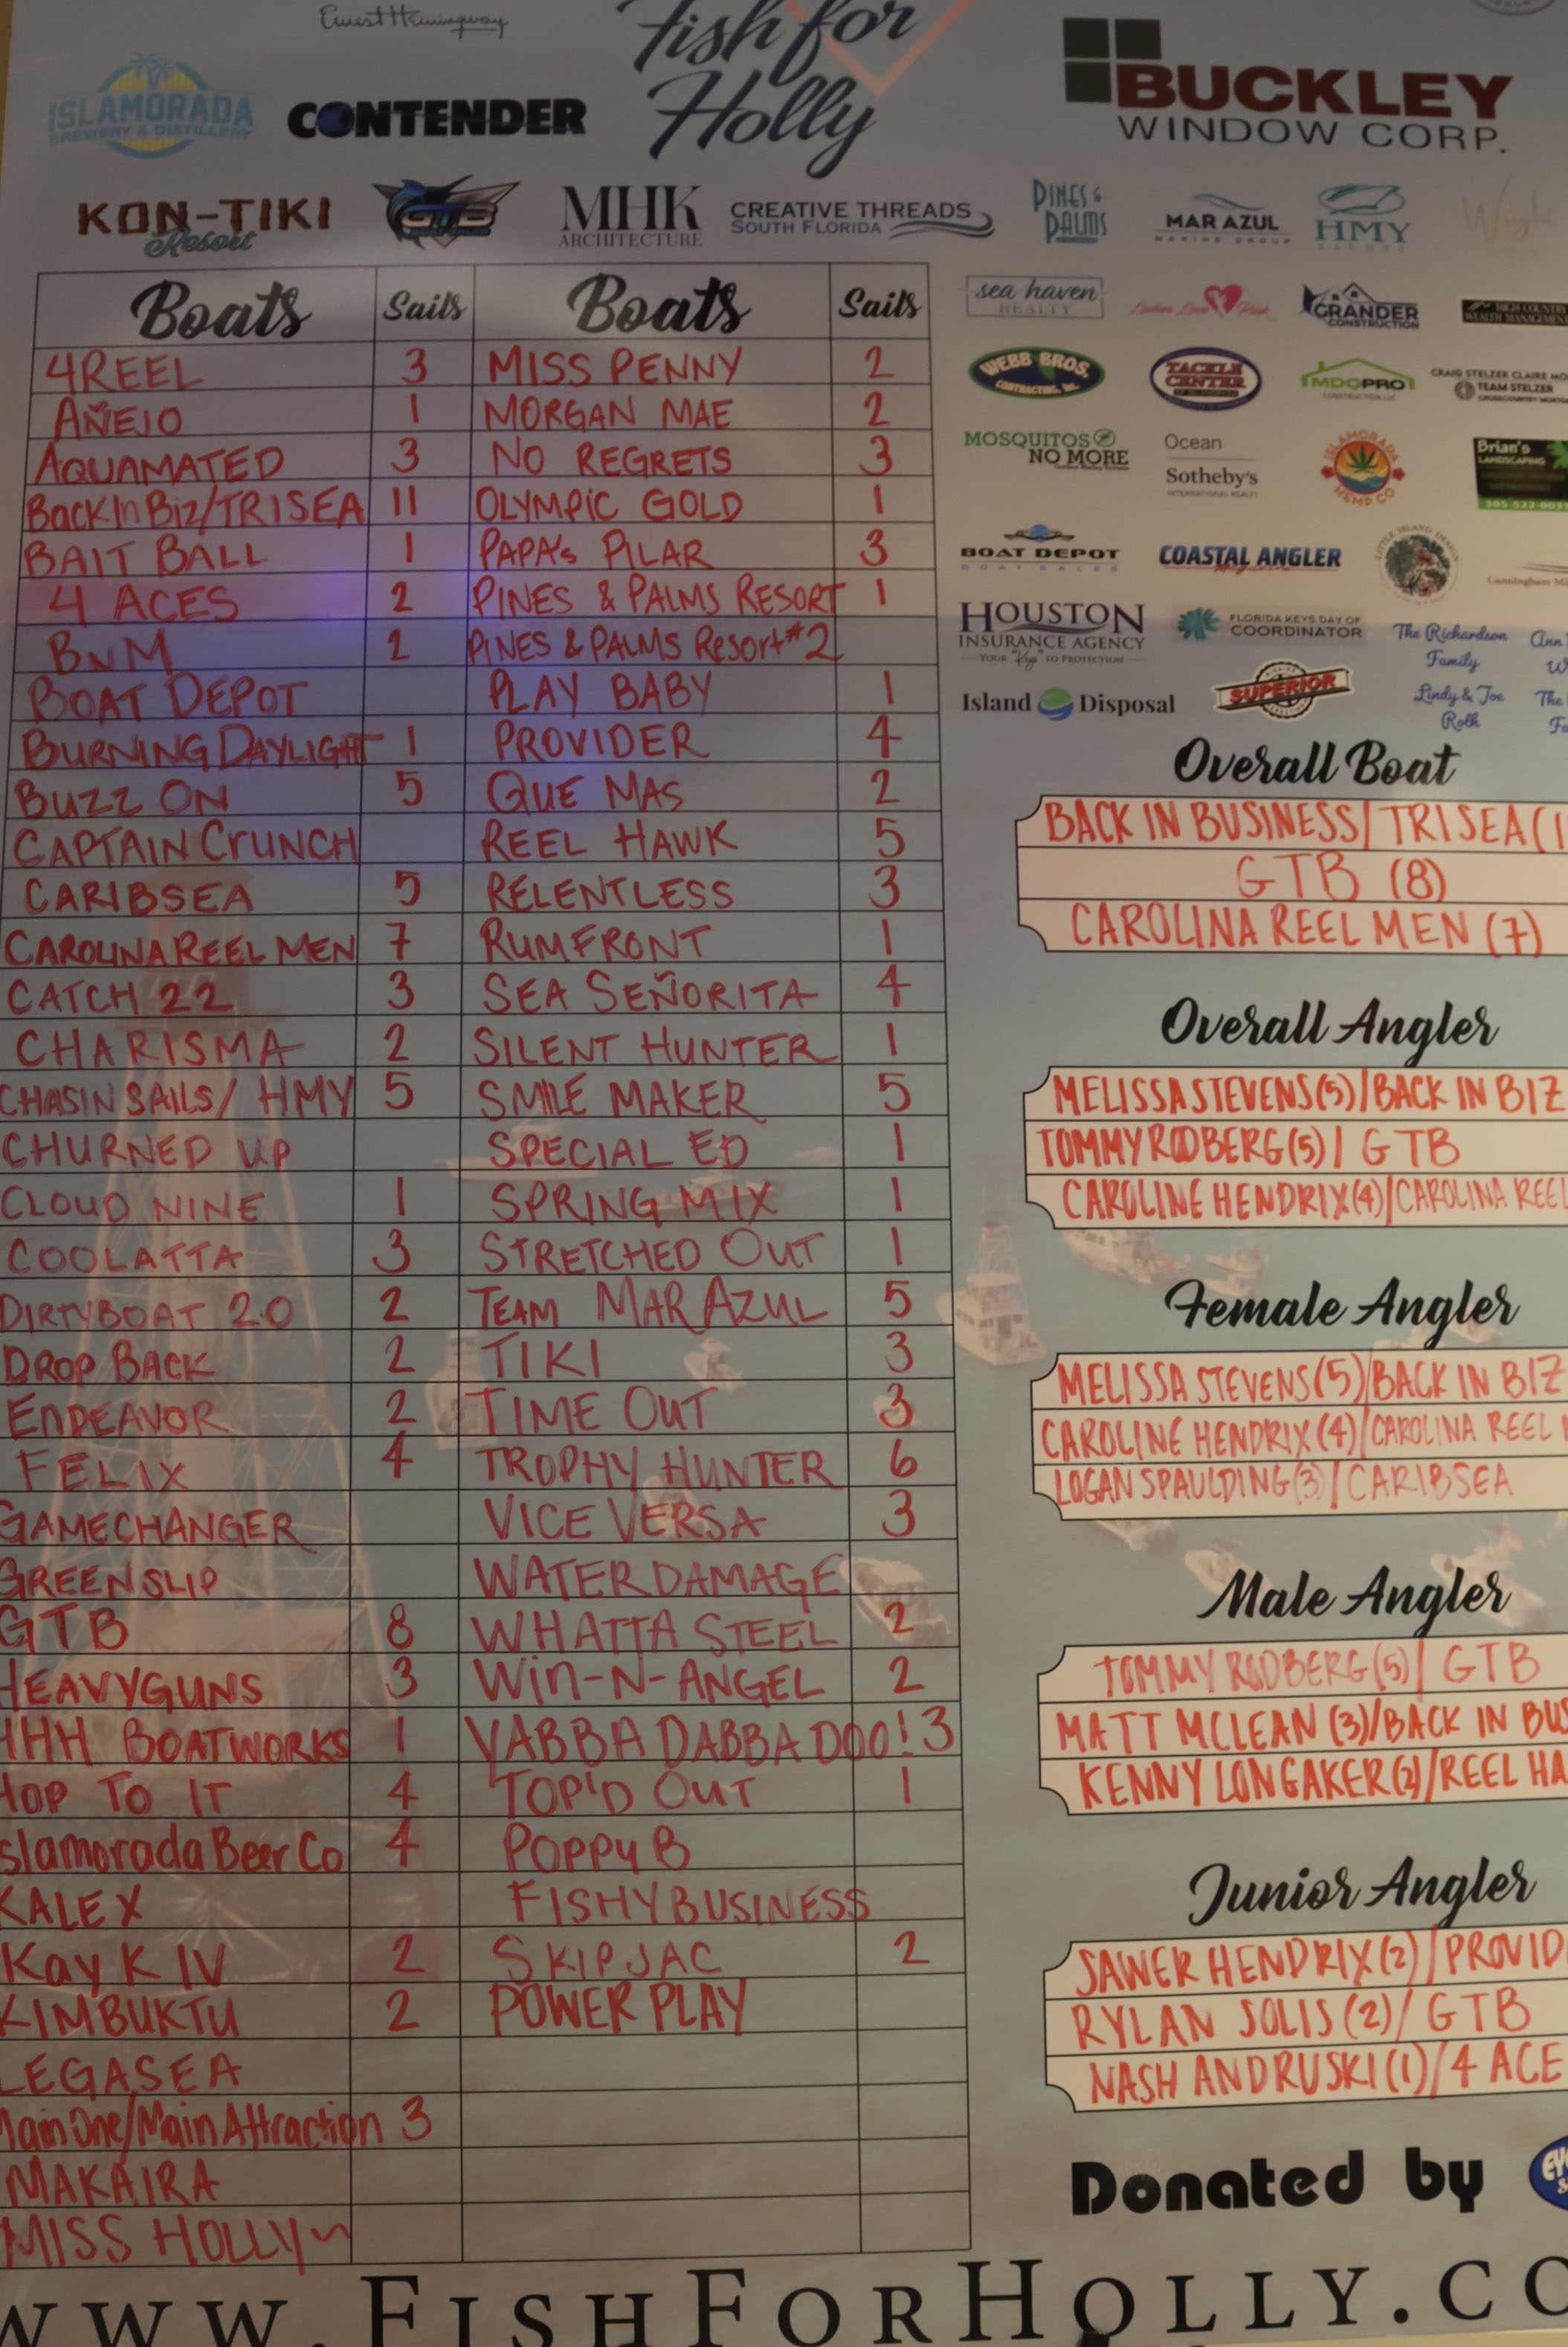 Ernest Hemingway
Fish for
Holly
ISLAMORADA
BREWERY & DISTILLERY
CONTENDER
BUCKLEY
WINDOW CORP.
KON-TIKI
Resort
GTB
MHK
ARCHITECTURE
CREATIVE THREADS
SOUTH FLORIDA
PINES &
PALMS
MAR AZUL
MARINE GROUP
HMY
YACHTS
Wright
sea haven
REALTY
Ladies Love Pink
GRANDER
CONSTRUCTION
HIGH COUNTRY
WEALTH MANAGEMENT
WEBB BROS.
CONTRACTING, INC.
TACKLE
CENTER
MDQPRO
CONSTRUCTION LLC
CRAIG STELZER CLAIRE MO
TEAM STELZER
MOSQUITOS
NO MORE
Ocean
Sotheby's
INTERNATIONAL REALTY
ISLAMORADA
HEMP CO
Brian's
LANDSCAPING
BOAT DEPOT
BOAT SALES
COASTAL ANGLER
Magazine
LITTLE ISLAND DESIGN
Cunningham
HOUSTON
INSURANCE AGENCY
YOUR "Keys" TO PROTECTION
FLORIDA KEYS DAY OF
COORDINATOR
The Richardson
Family
Ann
Island Disposal
SUPERIOR
Lindy & Joe
Roth
The
Boats Sails Boats Sails
4REEL 3 MISS PENNY 2
AÑEJO 1 MORGAN MAE 2
AQUAMATED 3 NO REGRETS 3
Back In Biz/TRISEA 11 OLYMPIC GOLD 1
BAIT BALL 1 PAPA's PILAR 3
4 ACES 2 PINES & PALMS RESORT 1
BNM 2 PINES & PALMS Resort #2
BOAT DEPOT PLAY BABY 1
BURNING DAYLIGHT 1 PROVIDER 4
BUZZ ON 5 QUE MAS 2
CAPTAIN CRUNCH REEL HAWK 5
CARIBSEA 5 RELENTLESS 3
CAROLINA REEL MEN 7 RUMFRONT 1
CATCH 22 3 SEA SEÑORITA 4
CHARISMA 2 SILENT HUNTER 1
CHASIN SAILS/ HMY 5 SMILE MAKER 5
CHURNED UP SPECIAL ED 1
CLOUD NINE 1 SPRING MIX 1
COOLATTA 3 STRETCHED OUT 1
DIRTYBOAT 2.0 2 TEAM MAR AZUL 5
DROP BACK 2 TIKI 3
ENDEAVOR 2 TIME OUT 3
FELIX 4 TROPHY HUNTER 6
GAMECHANGER VICE VERSA 3
GREEN SLIP WATERDAMAGE
GTB 8 WHATTA STEEL 2
HEAVYGUNS 3 WIN-N-ANGEL 2
HHH BOATWORKS 1 YABBA DABBA DOO! 3
HOP TO IT 4 TOP'D OUT 1
Islamorada Beer Co 4 POPPY B
KALEX FISHY BUSINESS
Kay K IV 2 SKIPJAC 2
KIMBUKTU 2 POWER PLAY
LEGASEA
Main One/Main Attraction 3
MAKAIRA
MISS HOLLY
Overall Boat
BACK IN BUSINESS/ TRISEA (1
GTB (8)
CAROLINA REEL MEN (7)
Overall Angler
MELISSA STEVENS (5)/BACK IN BIZ
TOMMY RODBERG (5)/ GTB
CAROLINE HENDRIX (4)/CAROLINA REEL
Female Angler
MELISSA STEVENS (5)/BACK IN BIZ
CAROLINE HENDRIX (4)/CAROLINA REEL
LOGAN SPAULDING (3)/ CARIBSEA
Male Angler
TOMMY RODBERG (5)/ GTB
MATT MCLEAN (3)/BACK IN BUS
KENNY LONGAKER (2)/REEL HA
Junior Angler
SAWER HENDRIX (2)/PROVID
RYLAN SOLIS (2)/ GTB
NASH ANDRUSKI (1)/4 ACE
Donated by
WWW.FISHFORHOLLY.CO